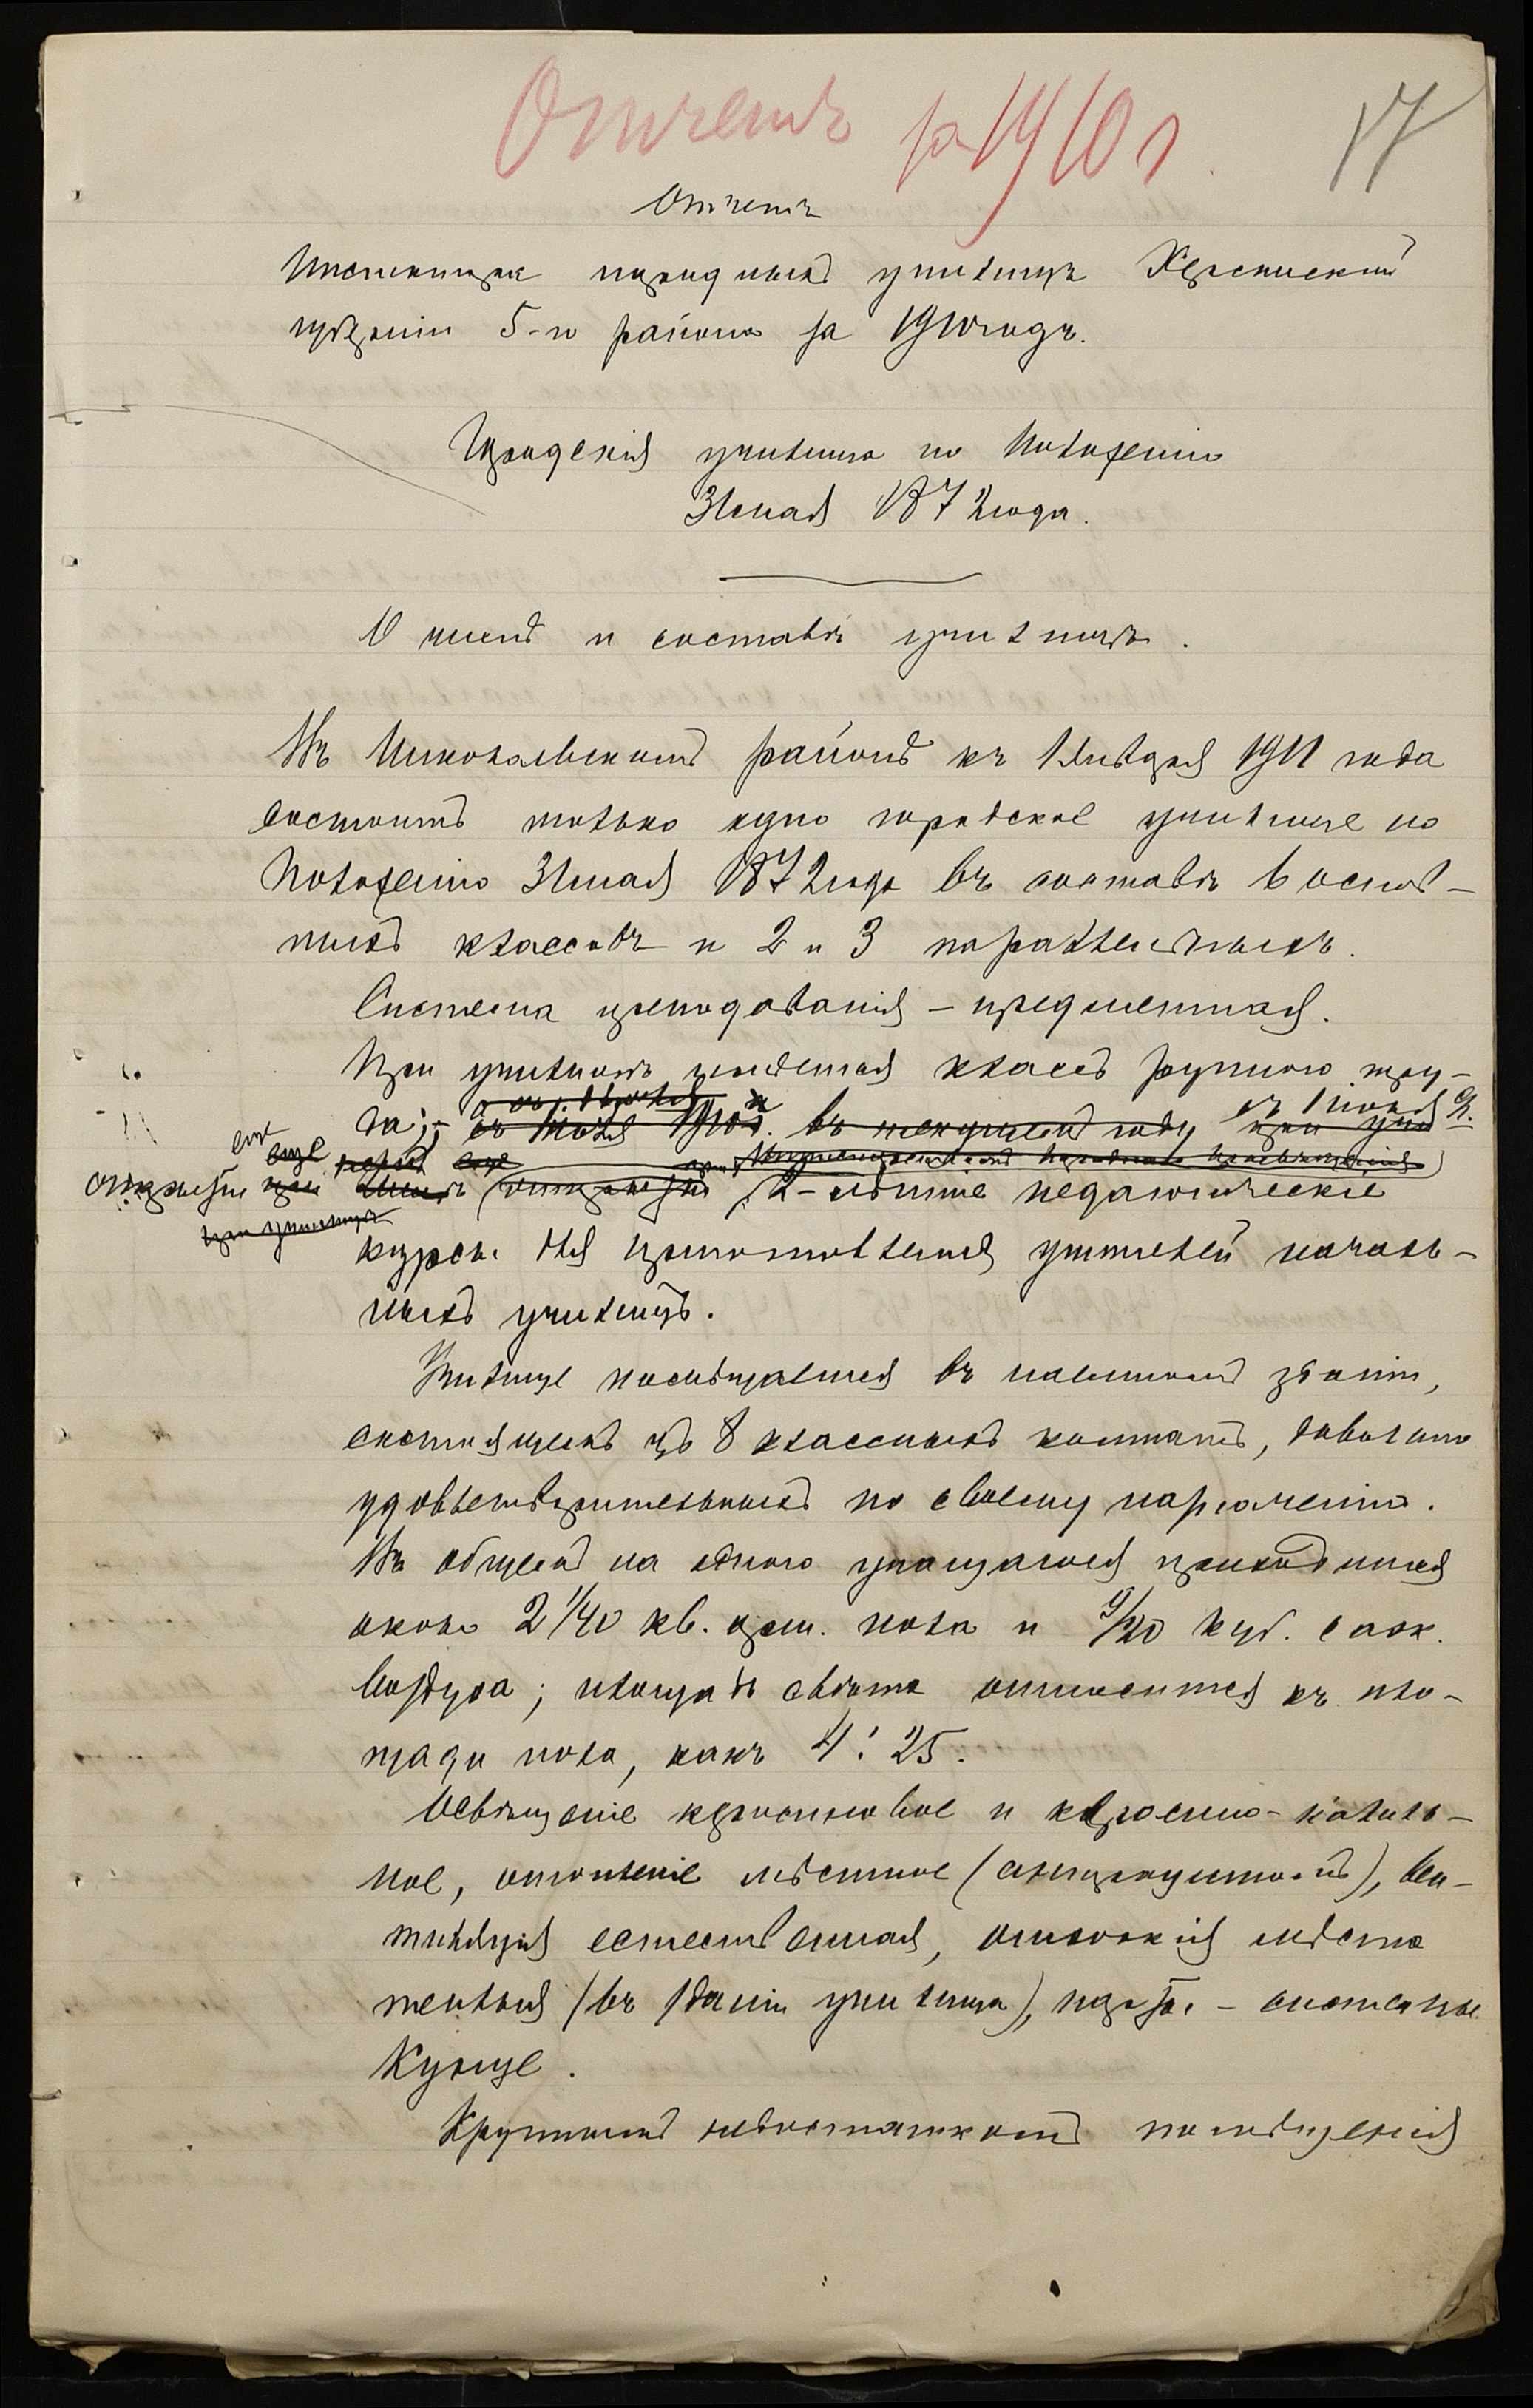 Отчетъ за 1910 г.
17
Отчетъ
Инспектора народныхъ училищъ Херсонской
губерніи 5-го района за 1910 годъ.
Городскія училища по Положенію
31 мая 1872 года.
О числѣ и составѣ училищъ.
Въ Николаевскомъ районѣ къ 1 Января 1911 года
состоитъ только одно городское училище по
Положенію 31 мая 1872 года въ составѣ 6 основ-
ныхъ классовъ и 2 и 3 параллельныхъ.
Система преподаванія - предметная.
При училищѣ имѣется классъ ручного тру-
да; съ 1 июля 1910 г. въ текущемъ году при учи
еще
открыты 2-лѣтніе педагогическіе
при училищѣ
курсы для приготовленія учителей началь-
ныхъ училищъ.
Училище помѣщается въ наемномъ зданіи,
состоящемъ изъ 8 классныхъ комнатъ, довольно
удовлетворительныхъ по своему назначенію.
Въ общемъ на одного учащагося приходится
около 2 1/40 кв. арш. пола и 9/20 куб. саж.
воздуха; площадь свѣта относится къ пло-
щади пола, какъ 4:25.
Освѣщеніе керосиновое и керосино-калиль-
ное, отопленіе мѣстное (антрацитомъ), вен-
тиляція естественная, отхожія мѣста
теплыя (въ зданіи училища), парты - системы
Кунце.
Крупнымъ недостаткомъ помѣщенія